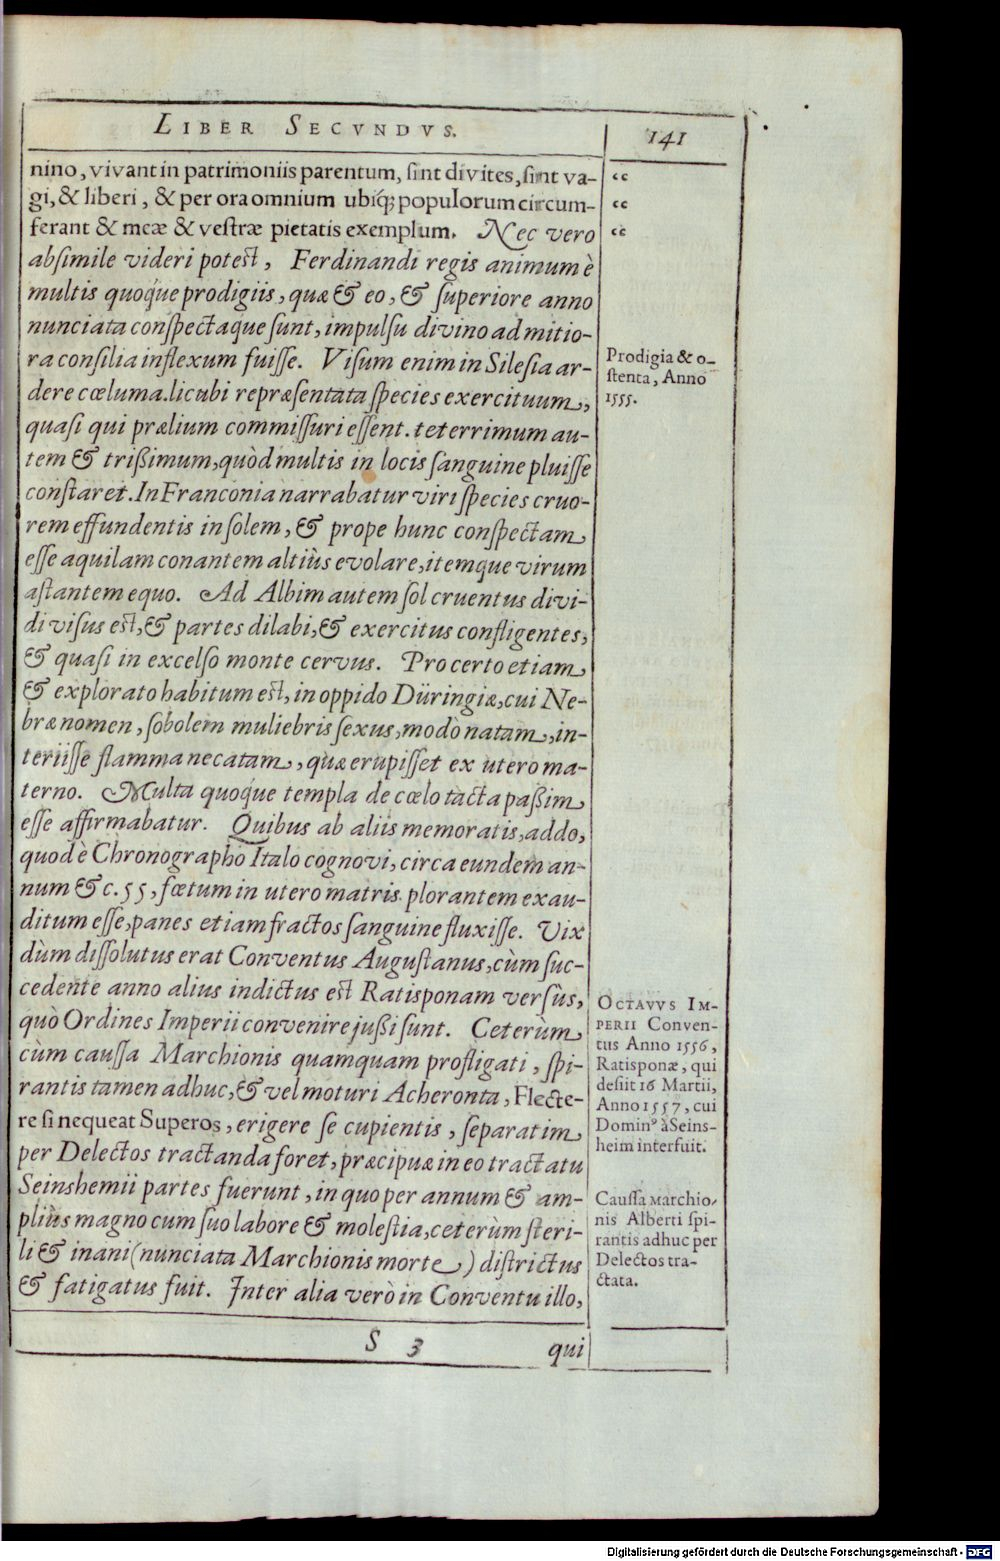 LIBER SECVNDVS.
141
nino, vivant in patrimoniis parentum, sint divites, sint va-
gi, & liberi, & per ora omnium ubiq; populorum circum-
ferant & meæ & vestræ pietatis exemplum. Nec vero
absimile videri potest, Ferdinandi regis animum è
multis quoque prodigiis, quæ & eo, & superiore anno
nunciata conspectaque sunt, impulsu divino ad mitio-
ra consilia inflexum fuisse. Visum enim in Silesia ar-
dere cœluma.licubi repræsentata species exercituum,
quasi qui prælium commissuri essent. teterrimum au-
tem & trißimum, quòd multis in locis sanguine pluisse
constaret. In Franconia narrabatur viri species cruo-
rem effundentis in solem, & prope hunc conspectam
esse aquilam conantem altiùs evolare, itemque virum
astantem equo. Ad Albim autem sol cruentus divi-
di visus est, & partes dilabi, & exercitus confligentes,
& quasi in excelso monte cervus. Pro certo etiam
& explorato habitum est, in oppido Düringiæ, cui Ne-
bræ nomen, sobolem muliebris sexus, modò natam, in-
teriisse flamma necatam, quæ erupisset ex utero ma-
terno. Multa quoque templa de cœlo tacta paßim
esse affirmabatur. Quibus ab aliis memoratis, addo,
quod è Chronographo Italo cognovi, circa eundem an-
num &c. 55, fœtum in utero matris plorantem exau-
ditum esse, panes etiam fractos sanguine fluxisse. Vix
dùm dissolutus erat Conventus Augustanus, cùm suc-
cedente anno alius indictus est Ratisponam versùs,
quò Ordines Imperii convenire jußi sunt. Ceterùm
cùm caussa Marchionis quamquam profligati, spi-
rantis tamen adhuc, & vel moturi Acheronta, Flecte-
re si nequeat Superos, erigere se cupientis, separatim
per Delectos tractanda foret, præcipuæ in eo tractatu
Seinshemii partes fuerunt, in quo per annum & am-
pliùs magno cum suo labore & molestia, ceterùm steri-
li & inani (nunciata Marchionis morte) districtus
& fatigatus fuit. Inter alia verò in Conventu illo,
S 3
qui
“
“
“
Prodigia & o-
stenta, Anno
1555.
OCTAVVS IM-
PERII Conven-
tus Anno 1556,
Ratisponæ, qui
desiit 16 Martii,
Anno 1557, cui
Dominꝰ à Seins-
heim interfuit.
Caussa Marchio-
nis Alberti spi-
rantis adhuc per
Delectos tra-
ctata.
Digitalisierung gefördert durch die Deutsche Forschungsgemeinschaft - DFG